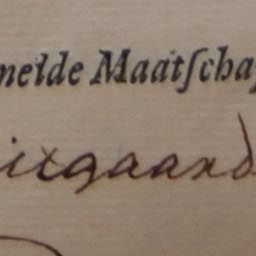 melde Maatſchap
itgaand